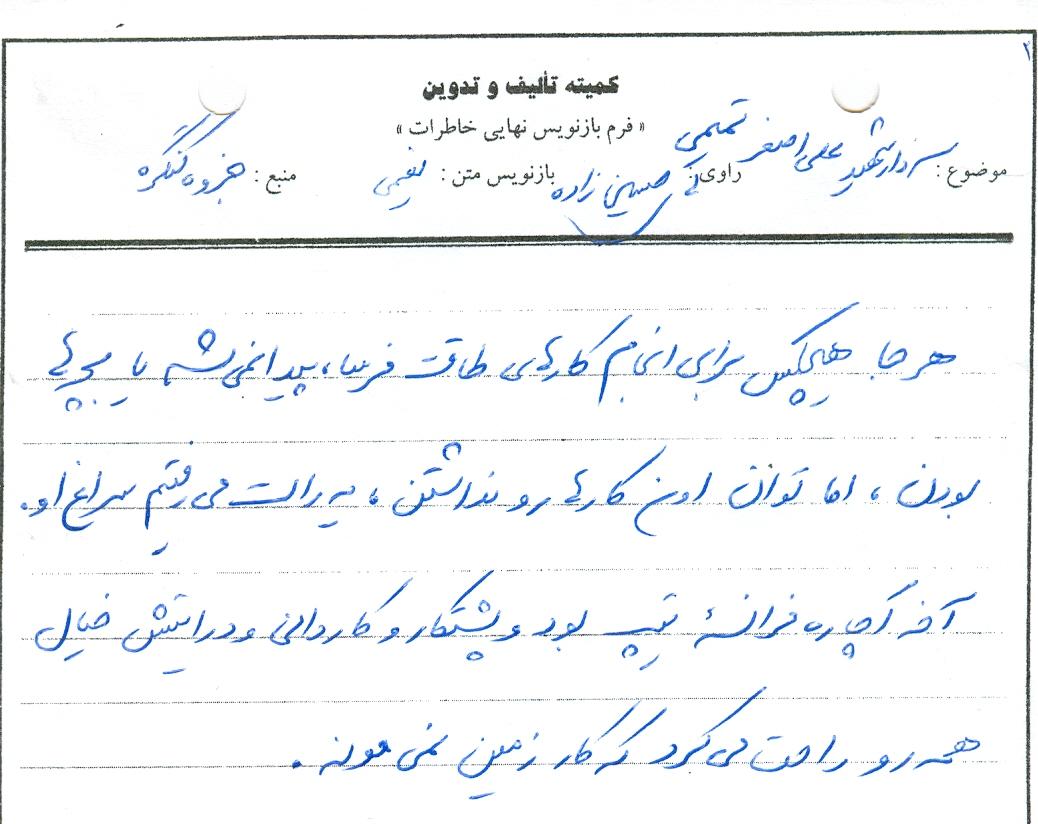 ۲
کمیته تألیف و تدوین
« فرم بازنویس نهایی خاطرات »
موضوع : سردار شهید علی اصغر تمیمی راوی : حسین زاده بازنویس متن : نعیمی منبع : جزوه کنگره
هر جا هیچکس برای انجام کارهای طاقت فرسا، پیدا نمی‌شه یا بچه‌هایی
بودن ، اما توان اون کارها رو نداشتن ، یه راست می رفتیم سراغ او .
آخه آچاره فرانسهٔ تیپ بود و پشتکار و کاردانی و درایتش خیال
همه رو راحت می کرد که کار زمین نمی مونه .